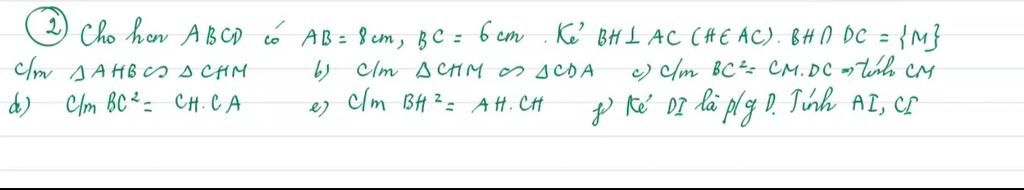 ② Cho hcn ABCD có AB = 8 cm, BC = 6 cm. Kẻ BH ⊥ AC (H ∈ AC). BH ∩ DC = {M}
c/m ΔAHB ∽ ΔCHM b) c/m ΔCHM ∽ ΔCDA c) c/m BC² = CM.DC ⇒ tính CM
d) c/m BC² = CH.CA e) c/m BH² = AH.CH f) Kẻ DI là p/g D. Tính AI, CI